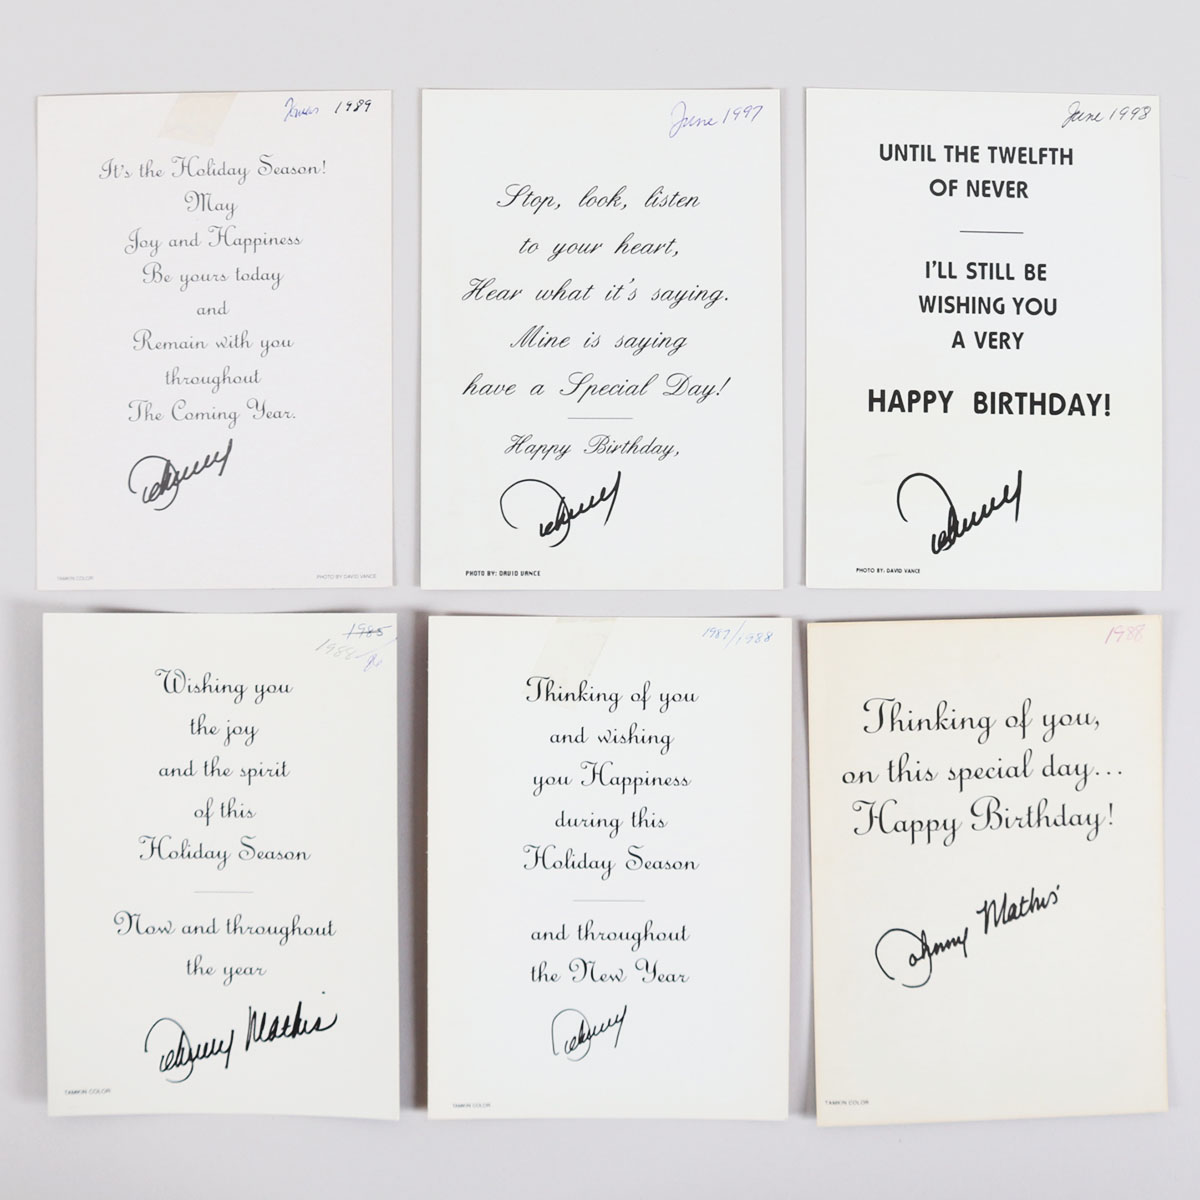 Xmas 1989
It's the Holiday Season!
May
Joy and Happiness
Be yours today
and
Remain with you
throughout
The Coming Year.
Johnny
TAMKIN COLOR
PHOTO BY DAVID VANCE
June 1997
Stop, look, listen
to your heart,
Hear what it's saying.
Mine is saying
have a Special Day!
Happy Birthday,
Johnny
PHOTO BY: DAVID VANCE
June 1998
UNTIL THE TWELFTH
OF NEVER
I'LL STILL BE
WISHING YOU
A VERY
HAPPY BIRTHDAY!
Johnny
PHOTO BY: DAVID VANCE
1985
Wishing you
the joy
and the spirit
of this
Holiday Season
Now and throughout
the year
Johnny Mathis
TAMKIN COLOR
1987/1988
Thinking of you
and wishing
you Happiness
during this
Holiday Season
and throughout
the New Year
Johnny
TAMKIN COLOR
1988
Thinking of you,
on this special day...
Happy Birthday!
Johnny Mathis
TAMKIN COLOR